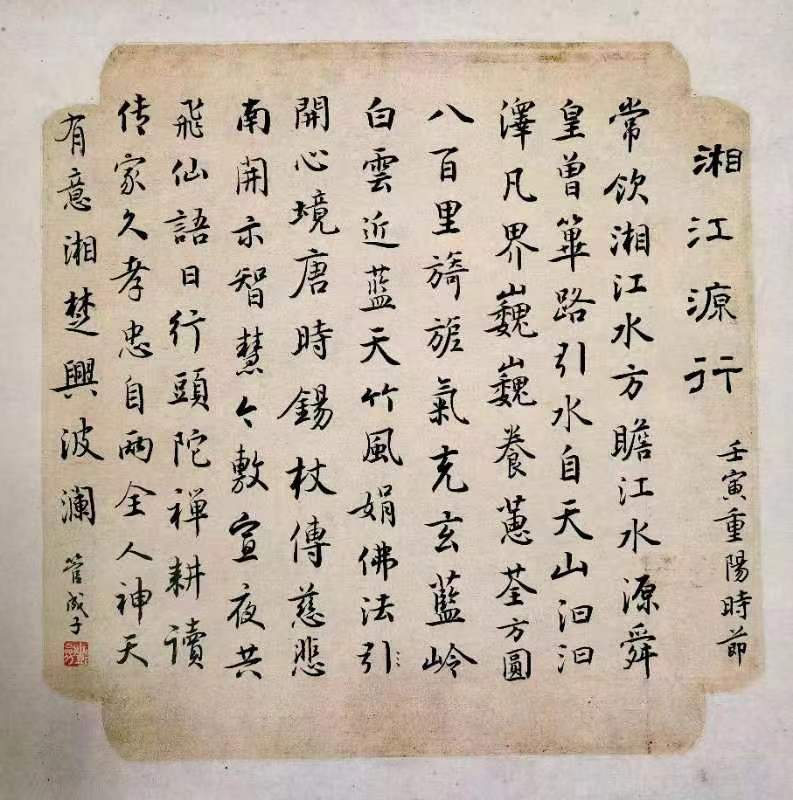 湘江源行
壬寅重陽時節
常飲湘江水方瞻江水源舜
皇曾篳路引水自天山汩汩
澤凡界巍巍養蕙荃方圓
八百里旖旎氣充玄藍岭
白雲近藍天竹風娟佛法引〻
開心境唐時錫杖傳慈悲
南開示智慧〻敷宣夜共
飛仙語日行頭陀禅耕讀
傳家久孝忠自兩全人神天
有意湘楚興波瀾
管成子